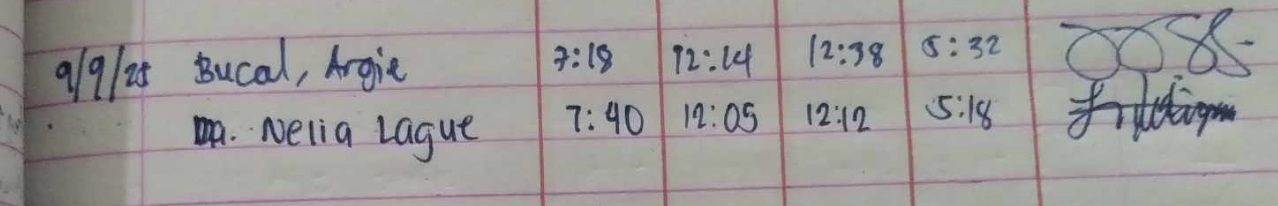 9/9/25 Bucal, Argie 7:18 12:14 12:38 5:32
Ma. Nelia Lague 7:40 12:05 12:12 5:18